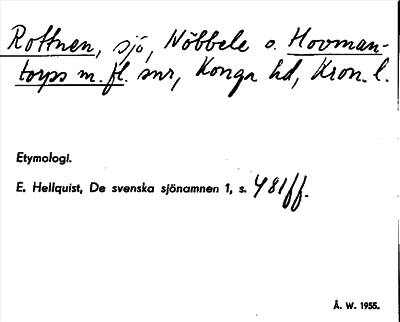 Rottnen, sjö, Nöbbele o. Hovman-
torps m. fl. snr, Konga hd, Kron. l.
Etymologi.
E. Hellquist, De svenska sjönamnen 1, s. 481ff.
Å. W. 1955.